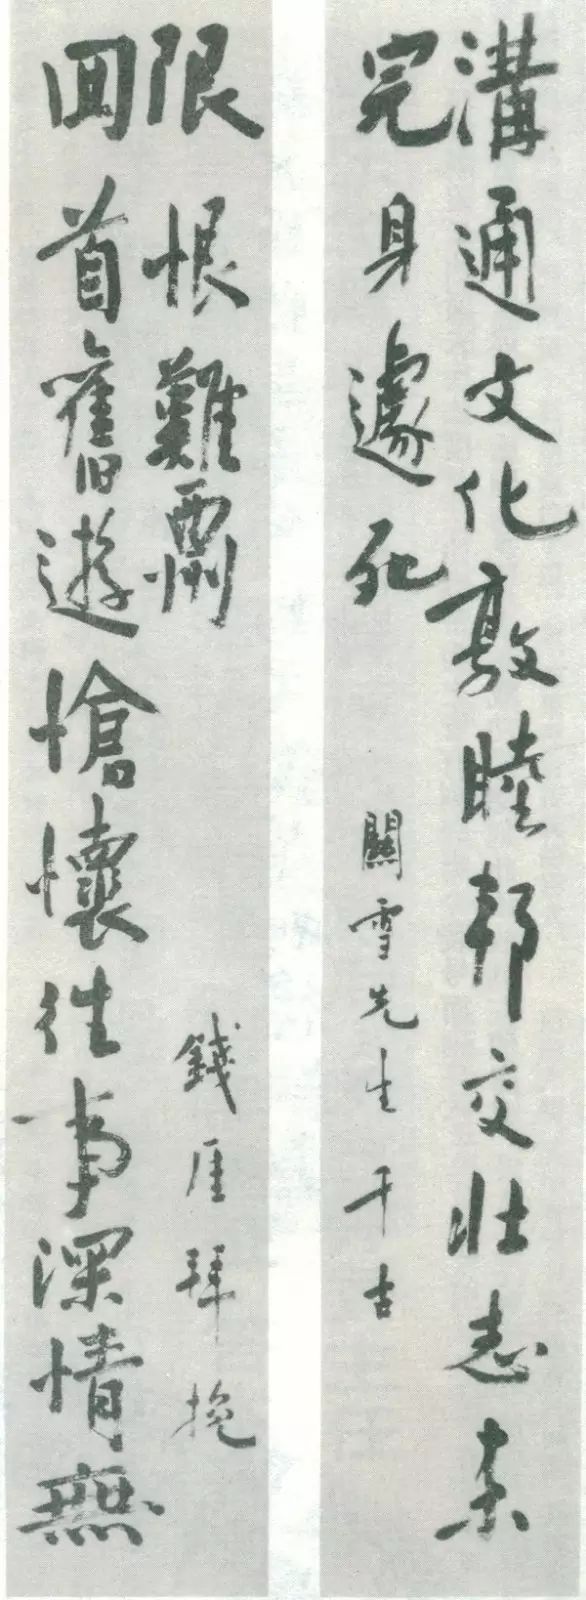 溝通文化敦睦邦交壯志未
完身遽死
關雪先生千古
回首舊遊愴懷往事深情無
限恨難酬
錢厓拜挽